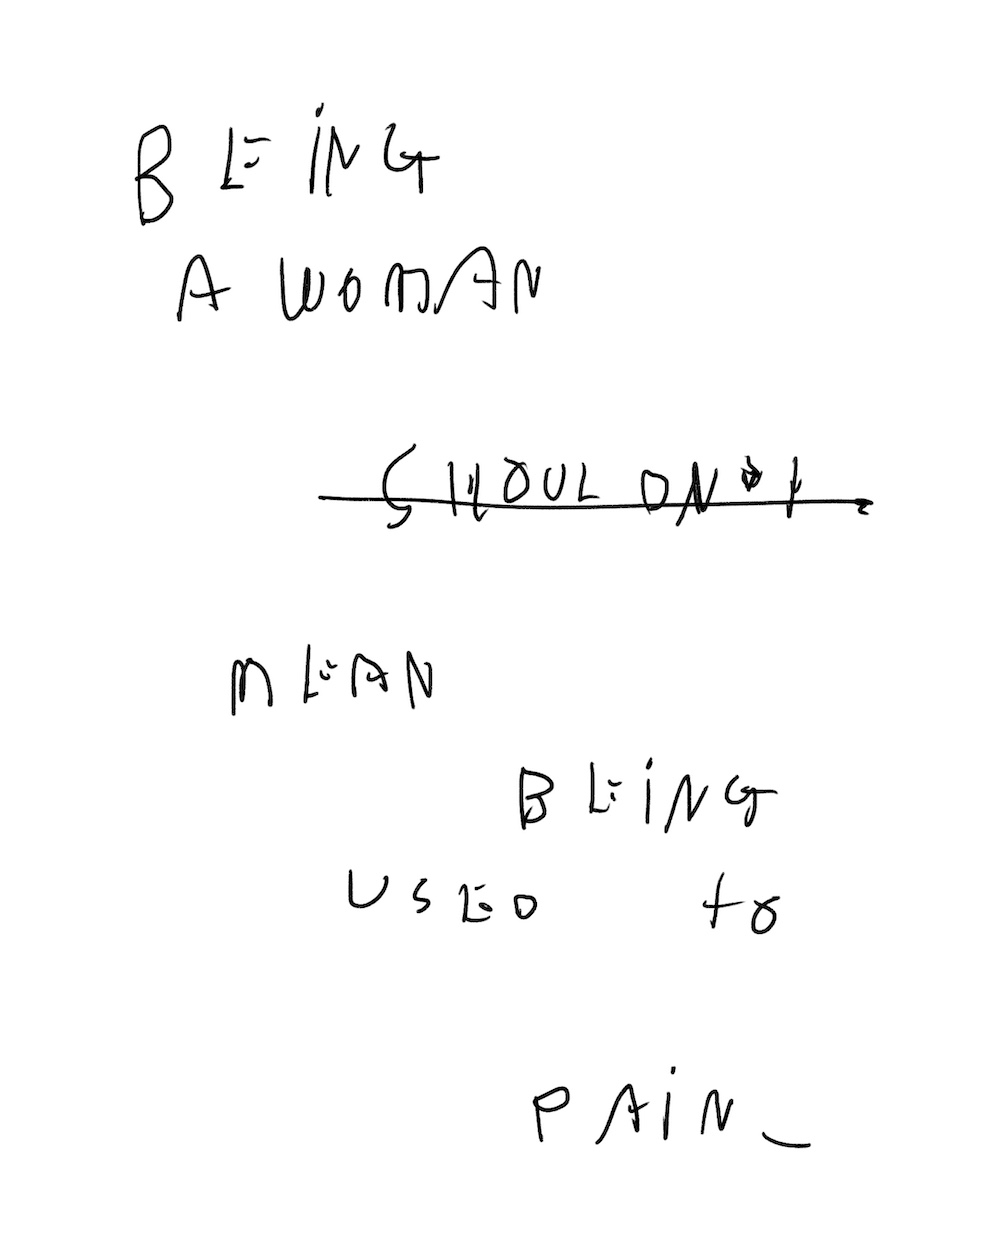 BEING
A WOMAN
SHOULDN'T
MEAN
BEING
USED to
PAIN_